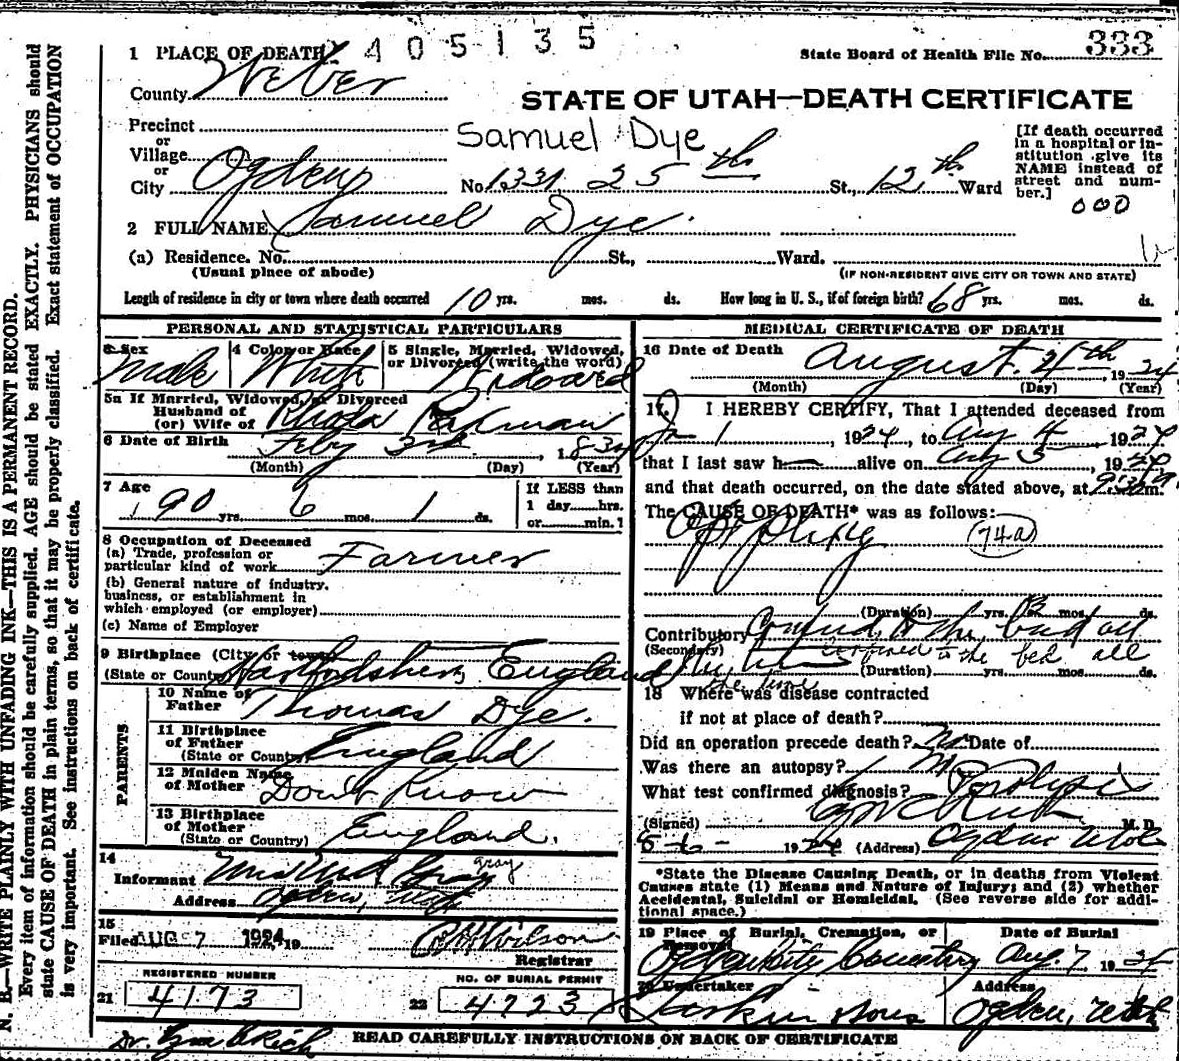 405135
1 PLACE OF DEATH
State Board of Health File No. 333
County Weber
STATE OF UTAH—DEATH CERTIFICATE
Precinct
or
Village
or
City Ogden No. 1331 25th St., 12th Ward
Samuel Dye
[If death occurred
in a hospital or in-
stitution give its
NAME instead of
street and num-
ber.]
000
2 FULL NAME Samuel Dye.
(a) Residence. No. St., Ward.
(Usual place of abode) (IF NON-RESIDENT GIVE CITY OR TOWN AND STATE)
Length of residence in city or town where death occurred 10 yrs. mos. ds. How long in U. S., if of foreign birth? 68 yrs. mos. ds.
PERSONAL AND STATISTICAL PARTICULARS
3 Sex 4 Color or Race 5 Single, Married, Widowed,
or Divorced (write the word)
Male White
5a If Married, Widowed, or Divorced
Husband of
(or) Wife of
6 Date of Birth Feby 3rd, 1834
(Month) (Day) (Year)
7 Age
90 yrs. 6 mos. 1 ds.
If LESS than
1 day hrs.
or min. ?
8 Occupation of Deceased
(a) Trade, profession or
particular kind of work Farmer
(b) General nature of industry.
business, or establishment in
which employed (or employer)
(c) Name of Employer
9 Birthplace (City or town)
(State or County) England
PARENTS
10 Name of
Father Thomas Dye.
11 Birthplace
of Father
(State or County) England
12 Maiden Name
of Mother Don't Know
13 Birthplace
of Mother
(State or Country) England.
14
Informant Gray
gray
Address Ogden, Utah
15
Filed AUG 7 1924 19
Wilson
Registrar
REGISTERED NUMBER
21 4173
NO. OF BURIAL PERMIT
22 4723
MEDICAL CERTIFICATE OF DEATH
16 Date of Death August 4th, 1924
(Month) (Day) (Year)
17. I HEREBY CERTIFY, That I attended deceased from
Jan 1, 1924, to Aug 4 1924
that I last saw h alive on Aug 3, 1924
and that death occurred, on the date stated above, at m.
The CAUSE OF DEATH* was as follows:
Apoplexy 74a
(Duration) yrs. mos. ds.
Contributory Confined to the bed all
(Secondary) confined to the bed all
the time
(Duration) yrs. mos. ds.
18 Where was disease contracted
if not at place of death?
Did an operation precede death? No Date of
Was there an autopsy?
What test confirmed diagnosis? Paralysis
(Signed) M. D.
8-6- 1924 (Address) Ogden Utah
*State the Disease Causing Death, or in deaths from Violent
Causes state (1) Means and Nature of Injury; and (2) whether
Accidental, Suicidal or Homicidal. (See reverse side for addi-
tional space.)
19 Place of Burial, Cremation, or
Removal
Date of Burial
Ogden City Cemetery Aug 7 1924
20 Undertaker Address
Larkin Sons Ogden, Utah
READ CAREFULLY INSTRUCTIONS ON BACK OF CERTIFICATE
Dr. Rich
N. B.—WRITE PLAINLY WITH UNFADING INK—THIS IS A PERMANENT RECORD.
Every item of information should be carefully supplied. AGE should be stated EXACTLY. PHYSICIANS should
state CAUSE OF DEATH in plain terms, so that it may be properly classified. Exact statement of OCCUPATION
is very important. See instructions on back of certificate.